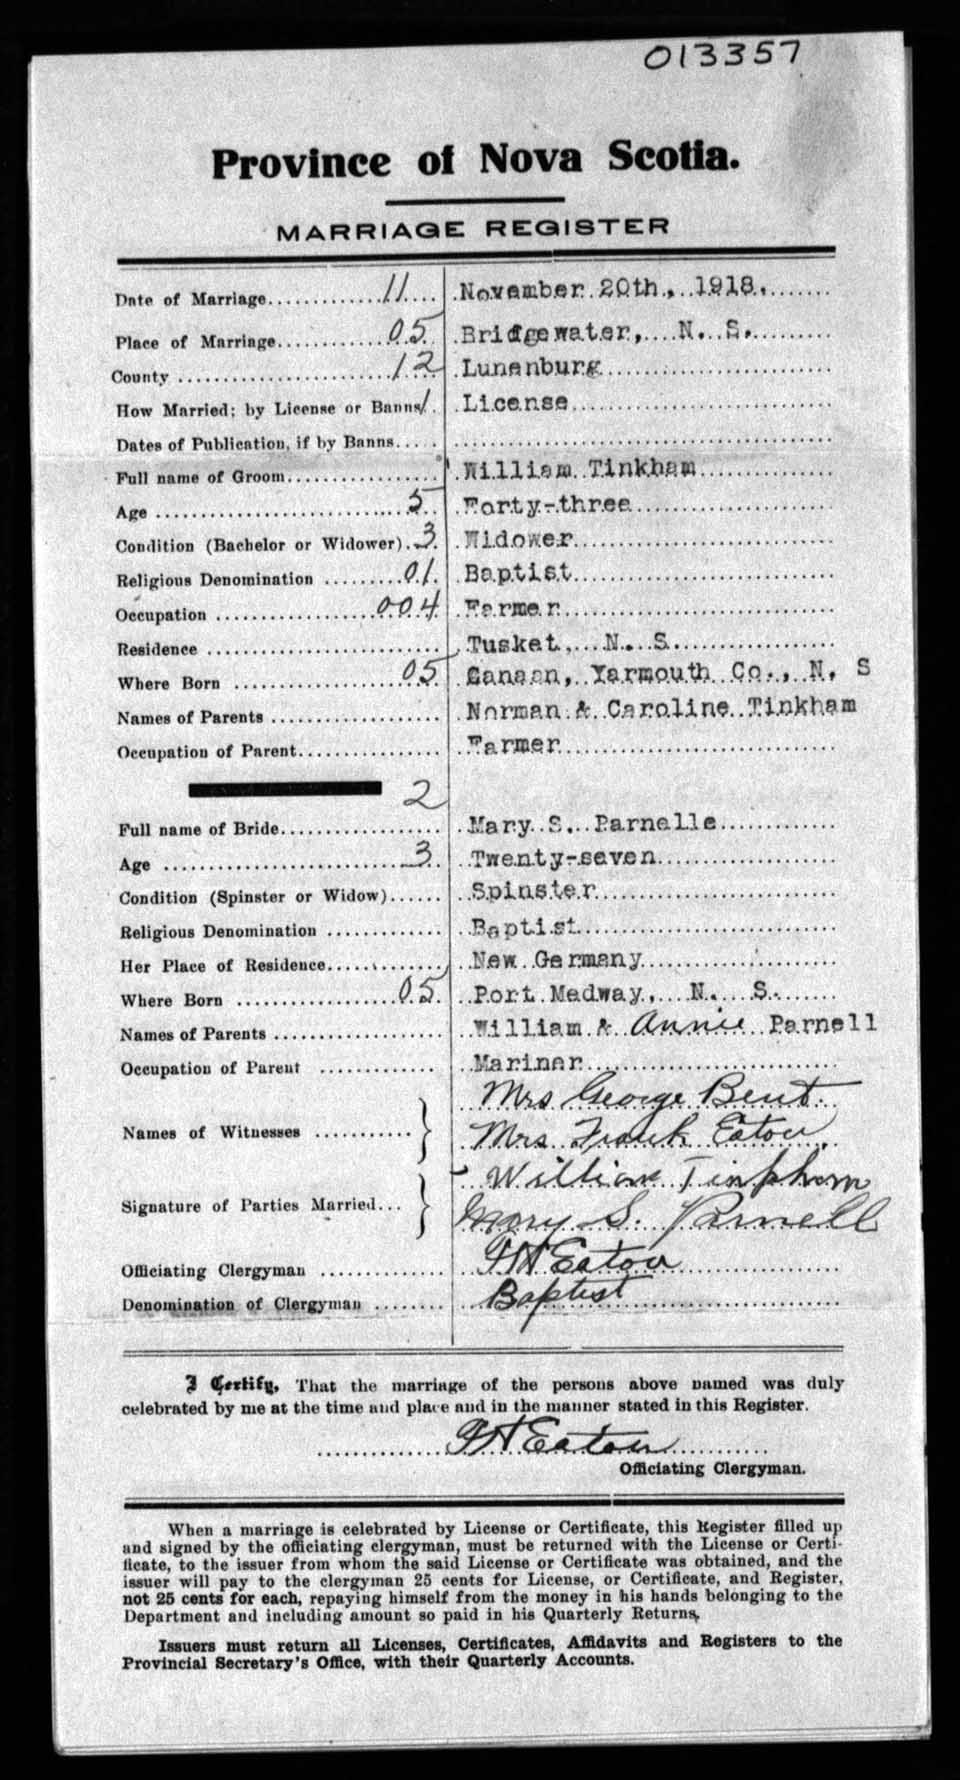 013357
Province of Nova Scotia.
MARRIAGE REGISTER
Date of Marriage.............11.... November 20th., 1918.
Place of Marriage............05. Bridgewater, N. S.
County ........................12 Lunenburg
How Married; by License or Banns 1. License
Dates of Publication, if by Banns.....
Full name of Groom................. William Tinkham
Age ............................5.. Forty-three
Condition (Bachelor or Widower). 3. Widower
Religious Denomination .........01. Baptist
Occupation ..................004. Farmer
Residence ......................... Tusket, N. S.
Where Born ..................05. Canaan, Yarmouth Co., N. S
Names of Parents ................... Norman & Caroline Tinkham
Occupation of Parent................ Farmer
2
Full name of Bride.................. Mary S. Parnelle
Age ............................3. Twenty-seven
Condition (Spinster or Widow)...... Spinster
Religious Denomination ............. Baptist
Her Place of Residence............. New Germany
Where Born ..................05. Port Medway, N. S.
Names of Parents ................... William & Annie Parnell
Occupation of Parent ............. Mariner
Mrs George Bent.
Names of Witnesses ........... } Mrs Frank Eaton
William Tinkham
Signature of Parties Married... } Mary S. Parnell
Officiating Clergyman .............. F H Eaton
Denomination of Clergyman ........ Baptist
I Certify, That the marriage of the persons above named was duly
celebrated by me at the time and place and in the manner stated in this Register.
F H Eaton
Officiating Clergyman.
When a marriage is celebrated by License or Certificate, this Register filled up
and signed by the officiating clergyman, must be returned with the License or Certi-
ficate, to the issuer from whom the said License or Certificate was obtained, and the
issuer will pay to the clergyman 25 cents for License, or Certificate, and Register,
not 25 cents for each, repaying himself from the money in his hands belonging to the
Department and including amount so paid in his Quarterly Returns.
Issuers must return all Licenses, Certificates, Affidavits and Registers to the
Provincial Secretary's Office, with their Quarterly Accounts.